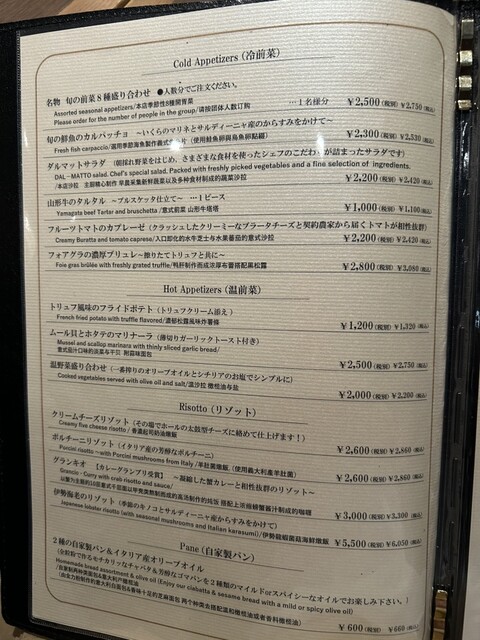 Cold Appetizers (冷前菜)
名物 旬の前菜8種盛り合わせ ●人数分でご注文ください。
Assorted seasonal appetizers/本店季節性8種開胃菜 …1名様分 ¥2,500(税別) ¥2,750(税込)
Please order for the number of people in the group/请按团体人数订购
旬の鮮魚のカルパッチョ ～いくらのマリネとサルディーニャ産のからすみをかけて～
Fresh fish carpaccio ¥2,300(税別) ¥2,530(税込)
ダルマットサラダ (朝採れ野菜をはじめ、さまざまな食材を使ったシェフのこだわりが詰まったサラダです)
DAL-MATTO salad. Chef's special salad. Packed with freshly picked vegetables and a fine selection of ingredients.
¥2,200(税別) ¥2,420(税込)
山形牛のタルタル ～ブルスケッタ仕立て～ …1ピース
Yamagata beef Tartar and bruschetta ¥1,000(税別) ¥1,100(税込)
フルーツトマトのカプレーゼ (クラッシュしたクリーミーなブラータチーズと契約農家から届くトマトが相性抜群)
Creamy Buratta and tomato caprese ¥2,200(税別) ¥2,420(税込)
フォアグラの濃厚ブリュレ～擦りたてトリュフと共に～
Foie gras brûlée with freshly grated truffle ¥2,800(税別) ¥3,080(税込)
Hot Appetizers (温前菜)
トリュフ風味のフライドポテト (トリュフクリーム添え)
French fried potato with truffle flavored ¥1,200(税別) ¥1,320(税込)
ムール貝とホタテのマリナーラ (薄切りガーリックトースト付き)
Mussel and scallop marinara with thinly sliced garlic bread/
¥2,500(税別) ¥2,750(税込)
温野菜盛り合わせ (一番搾りのオリーブオイルとシチリアのお塩でシンプルに)
Cooked vegetables served with olive oil and salt ¥2,000(税別) ¥2,200(税込)
Risotto (リゾット)
クリームチーズリゾット (その場でホールの太鼓型チーズに絡めて仕上げます!)
Creamy five cheese risotto ¥2,600(税別) ¥2,860(税込)
ポルチーニリゾット (イタリア産の芳醇なポルチーニ)
Porcini risotto ～with Porcini mushrooms from Italy ¥2,600(税別) ¥2,860(税込)
グランキオ 【カレーグランプリ受賞】 ～凝縮した蟹カレーと相性抜群のリゾット～
Grancio - Curry with crab risotto and sauce/
¥3,000(税別) ¥3,300(税込)
伊勢海老のリゾット (季節のキノコとサルディーニャ産からすみをかけて)
Japanese lobster risotto (with seasonal mushrooms and Italian karasumi) ¥5,500(税別) ¥6,050(税込)
Pane (自家製パン)
2種の自家製パン&イタリア産オリーブオイル
(全粒粉で作るモチカリッなチャバタ&芳醇なゴマパンを2種類のマイルドorスパイシーなオイルでお楽しみ下さい。)
Homemade bread assortment & olive oil (Enjoy our ciabatta & sesame bread with a mild or spicy olive oil)
¥600(税別) ¥660(税込)